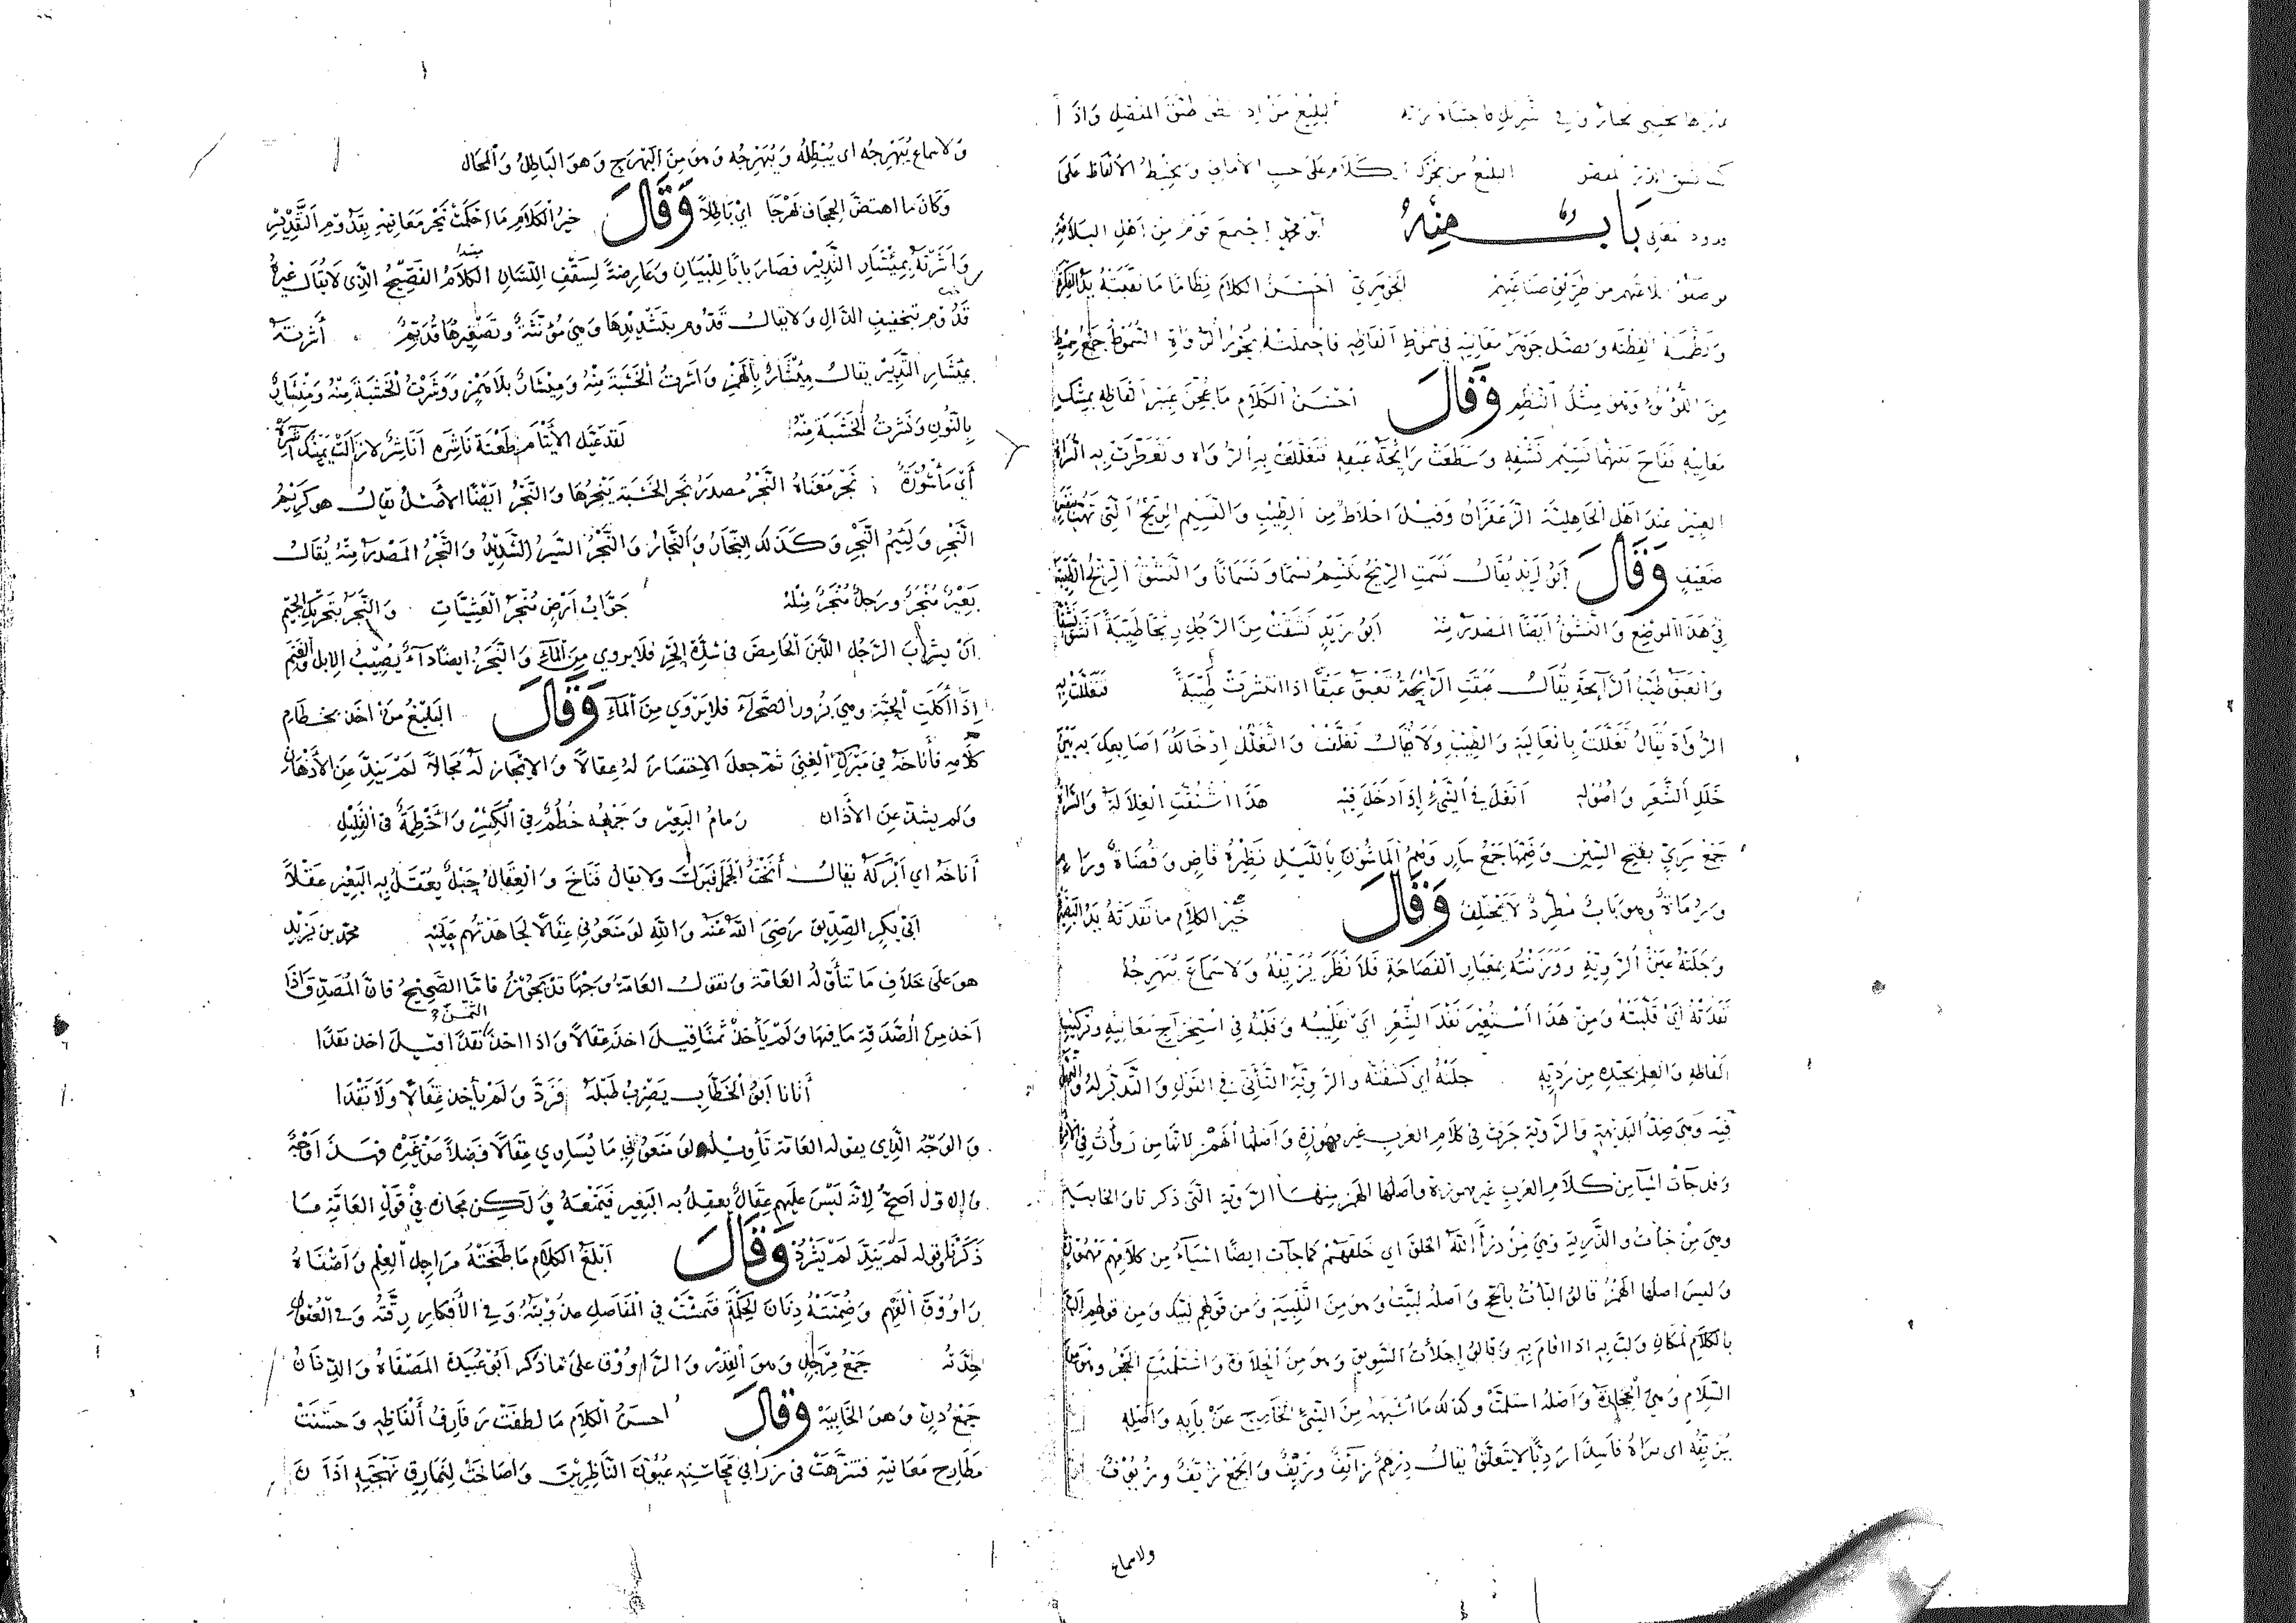 البليغ من اذا نطق طبق المفصل واذا
البليغ من يحوك الكلام على حسب الأماني ويخيط الألفاظ على
قدود المعاني باب منه أبو محمد اجتمع قوم من أهل البلاغة
فوصفوا بلاغتهم من طريق صناعتهم الجوهري أحسن الكلام نظاما ما ثقبته يد الفكرة
ونظمته الفطنة ووصل جوهر معانيه في سموط ألفاظه فاحتملته نحور الرواة السموط جمع سمط
من اللؤلؤ وهو مثل النظم وقال أحسن الكلام ما عجن عنبر ألفاظه بمسك
معانيه ففاح نسيم نشقه وسطعت رائحة عبقه فتعلقت به الرواة وتعطرت به السراة
العبير عند أهل الجاهلية الزعفران وقيل اخلاط من الطيب والنسيم الريح التي تهب بنفس
ضعيف وقال أبو زيد يقال نسمت الريح تنسم نسما ونسمانا والنشق الريح الطيبة
في هذا الموضع والنشق أيضا المصدر منه أبو زيد نشقت من الرجل ريحا طيبة أنشق نشقا
والعبق طيب الرائحة يقال عبقت الرائحة تعبق عبقا اذا انتشرت طيبة فتغللت به
الرواة يقال تغللت بالغالية والطيب ولا يقال تغلفت والتغلل إدخالك أصابعك به بين
خلل الشعر واصوله انغل في الشيء إذا دخل فيه هذا اشتقت الغلالة والسراة
جمع سري بفتح السين وضمها جمع سار وهم الماشون بالليل نظيره قاض وقضاة ورام
ورماة وهو باب مطرد لا يختلف وقال خير الكلام ما نقدته يد البصيرة
وجلته عين الروية ووزنته بمعيار الفصاحة فلا نظر يزيفه ولا سماع يبهرجه
نقدته أي قلبته ومن هذا استعير نقد الشعر أي تقليبه وقلبه في استخراج معانيه وتركيب
ألفاظه والعلم بجيده من رديه جلته أي كشفته والروية التأني في القول والتدبر له والتمهل
فيه وهي ضد البديهة والروية جرت في كلام العرب غير مهموزة وأصلها الهمز لانها من روأت في الأمر
وقد جآت اشيا من كلام العرب غير مهموزة وأصلها الهمز منها الروية التي ذكرنا والخابية
وهي من خبأت والذرية وهي من ذرأ الله الخلق اي خلقهم كما جآت ايضا اشياء من كلامهم مهموزة
وليس اصلها الهمز قالوا لبأت بالحج وأصله لبيت وهو من التلبية ومن قولهم لبيك ومن قولهم الب
بالمكان ولب به اذا اقام به وقالوا حلأت السويق وهو من الحلاوة واستلمت الحجر وهو من
السلام وهي الحجارة وأصله استلمت وكذلك ما أشبهه من الشيء الخارج عن بابه وأصله
يزيفه اي يراه فاسدا رديا لا يتعلق يقال درهم زائف وزيف والجمع زيف وزيوف
ولا سماع
ولا سماع يبهرجه اى يبطله ويبهرجه وهو من البهرج وهو الباطل والمحال
وكان ما اهتض الحجاف بهرجا اي باطلا وقال خير الكلام ما احكمت نجر معانيه بقدوم التقدير
وأشرته بميشار التدبير فصار بابا للبيان وعارضة لسقف اللسان الكلام الفصيح الذي لا يقال غيره
قدوم بتخفيف الدال ولا يقال قدوم بتشديدها وهي مؤنثة وتصغيرها قديم أشرته
بمئشار التدبير يقال مئشار بالهمز وأشرت الخشبة منه وميشار بلا همز ووشرت الخشبة منه ومنشار
بالنون ونشرت الخشبة منه لقد عيل الأيتام طعنة ناشره أناشر لا زالت يمينك آشره
أي مأشورة نجر معناه النجر مصدر نجر الخشبة ينجرها والنجر ايضا الأصل يقال هو كريم
النجر ولئيم النجر وكذلك النجار والنجار والنجر السير الشديد والنجر المصدر منه يقال
بعير منجر ورجل منجر مثله جواب أرض منجر العشيات والنجر بتحريك الجيم
أن يشرب الرجل اللبن الحامض في شدة الحر فلا يروي من الماء والنجر ايضا داء يصيب الابل والغنم
إذا أكلت الحبة وهي بزور الصحراء فلا يروي من الماء وقال البليغ من اخذ بخطام
كلامه فأناخه في مبرك المعنى ثم جعل الاختصار له عقالا والايجاز له مجالا لم يند عن الأذهان
ولم يشذ عن الآذان زمام البعير وجمعه خطم في الكثير وأخطمة في القليل
أناخه اي أبركه يقال أنخت الجمل فبرك ولا يقال فناخ والعقال حبل يعقل به البعير عقلا
أبي بكر الصديق رضي الله عنه والله لو منعوني عقالا لجاهدتهم عليه محمد بن يزيد
هو على خلاف ما تتأوله العامة وتقول العامة وجها قد يجوز فاما الصحيح فان المصدق اذا
اخذ من الصدقة ما فيها ولم يأخذ ثمنا قيل اخذ عقالا واذا اخذ الثمن قيل اخذ نقدا
أتانا ابو الخطاب يضرب طبله فرد ولم يأخذ عقالا ولا نقدا
والوجه الذي يقوله العامة تأويله لو منعوني ما يساوي عقالا فضلا عن غيره فهذا وجه
والاول اصح لانه ليس عليهم عقال يعقل به البعير فيمنعه ولكن مجازه في قول العامة ما
ذكرنا وقوله لم يند لم يشرد وقال أبلغ الكلام ما طبخته مراجل العلم وصفاه
راووق الفهم وضمنته دنان الحكمة فتمشت في المفاصل عذوبته وفي الأفكار رقته وفي العقول
حدته جمع مرجل وهو القدر والراووق على ما ذكر ابو عبيدة المصفاة والدنان
جمع دن وهو الخابية وقال احسن الكلام ما لطفت رفارف ألفاظه وحسنت
مطارح معانيه فتنزهت في زرابي محاسنه عيون الناظرين وأصاخت لنمارق بهجته آذان